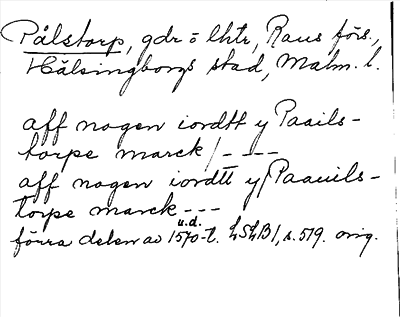 Pålstorp, gdr o lhtr, Raus förs.,
Hälsingborgs stad, Malm. l.
aff nogen iordtt y Paails-
torpe marck / - - - -
aff nogen iordtt y Paauils-
torpe marck - - -
u.d.
förra delen av 1570-t. LSLB1, s. 519. orig.